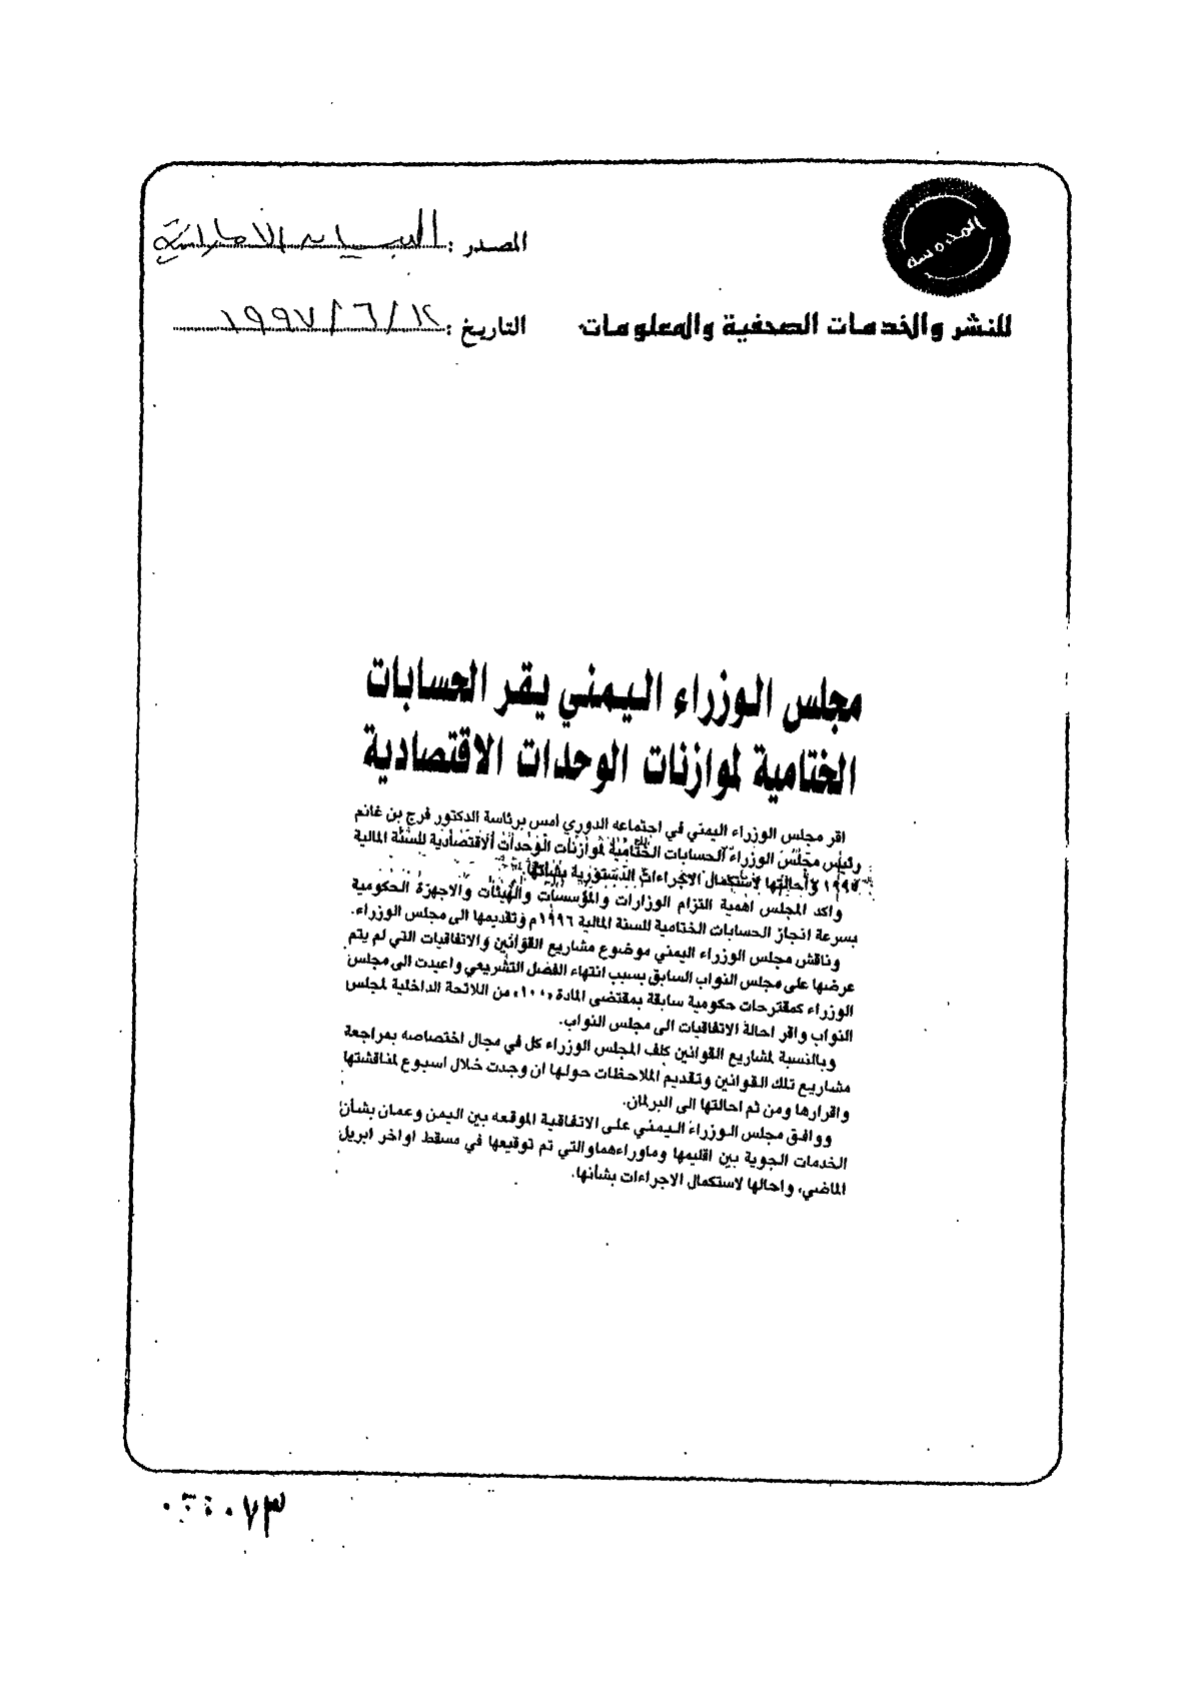 المصدر : البيان الاماراتية
للنشر والخدمات الصحفية والمعلومات
التاريخ : ١٢ / ٦ / ١٩٩٧
مجلس الوزراء اليمني يقر الحسابات
الختامية لموازنات الوحدات الاقتصادية
اقر مجلس الوزراء اليمني في اجتماعه الدوري امس برئاسة الدكتور فرج بن غانم
رئيس مجلس الوزراء الحسابات الختامية لموازنات الوحدات الاقتصادية للسنة المالية
١٩٩٥ واحالتها لاستكمال الاجراءات الدستورية بشأنها.
واكد المجلس اهمية التزام الوزارات والمؤسسات والهيئات والاجهزة الحكومية
بسرعة انجاز الحسابات الختامية للسنة المالية ١٩٩٦م وتقديمها الى مجلس الوزراء.
وناقش مجلس الوزراء اليمني موضوع مشاريع القوانين والاتفاقيات التي لم يتم
عرضها على مجلس النواب السابق بسبب انتهاء الفصل التشريعي واعيدت الى مجلس
الوزراء كمقترحات حكومية سابقة بمقتضى المادة «١٠٠» من اللائحة الداخلية لمجلس
النواب واقر احالة الاتفاقيات الى مجلس النواب.
وبالنسبة لمشاريع القوانين كلف المجلس الوزراء كل في مجال اختصاصه بمراجعة
مشاريع تلك القوانين وتقديم الملاحظات حولها ان وجدت خلال اسبوع لمناقشتها
واقرارها ومن ثم احالتها الى البرلمان.
ووافق مجلس الوزراء اليمني على الاتفاقية الموقعه بين اليمن وعمان بشأن
الخدمات الجوية بين اقليمها وماوراءهماوالتي تم توقيعها في مسقط اواخر ابريل
الماضي، واحالها لاستكمال الاجراءات بشأنها.